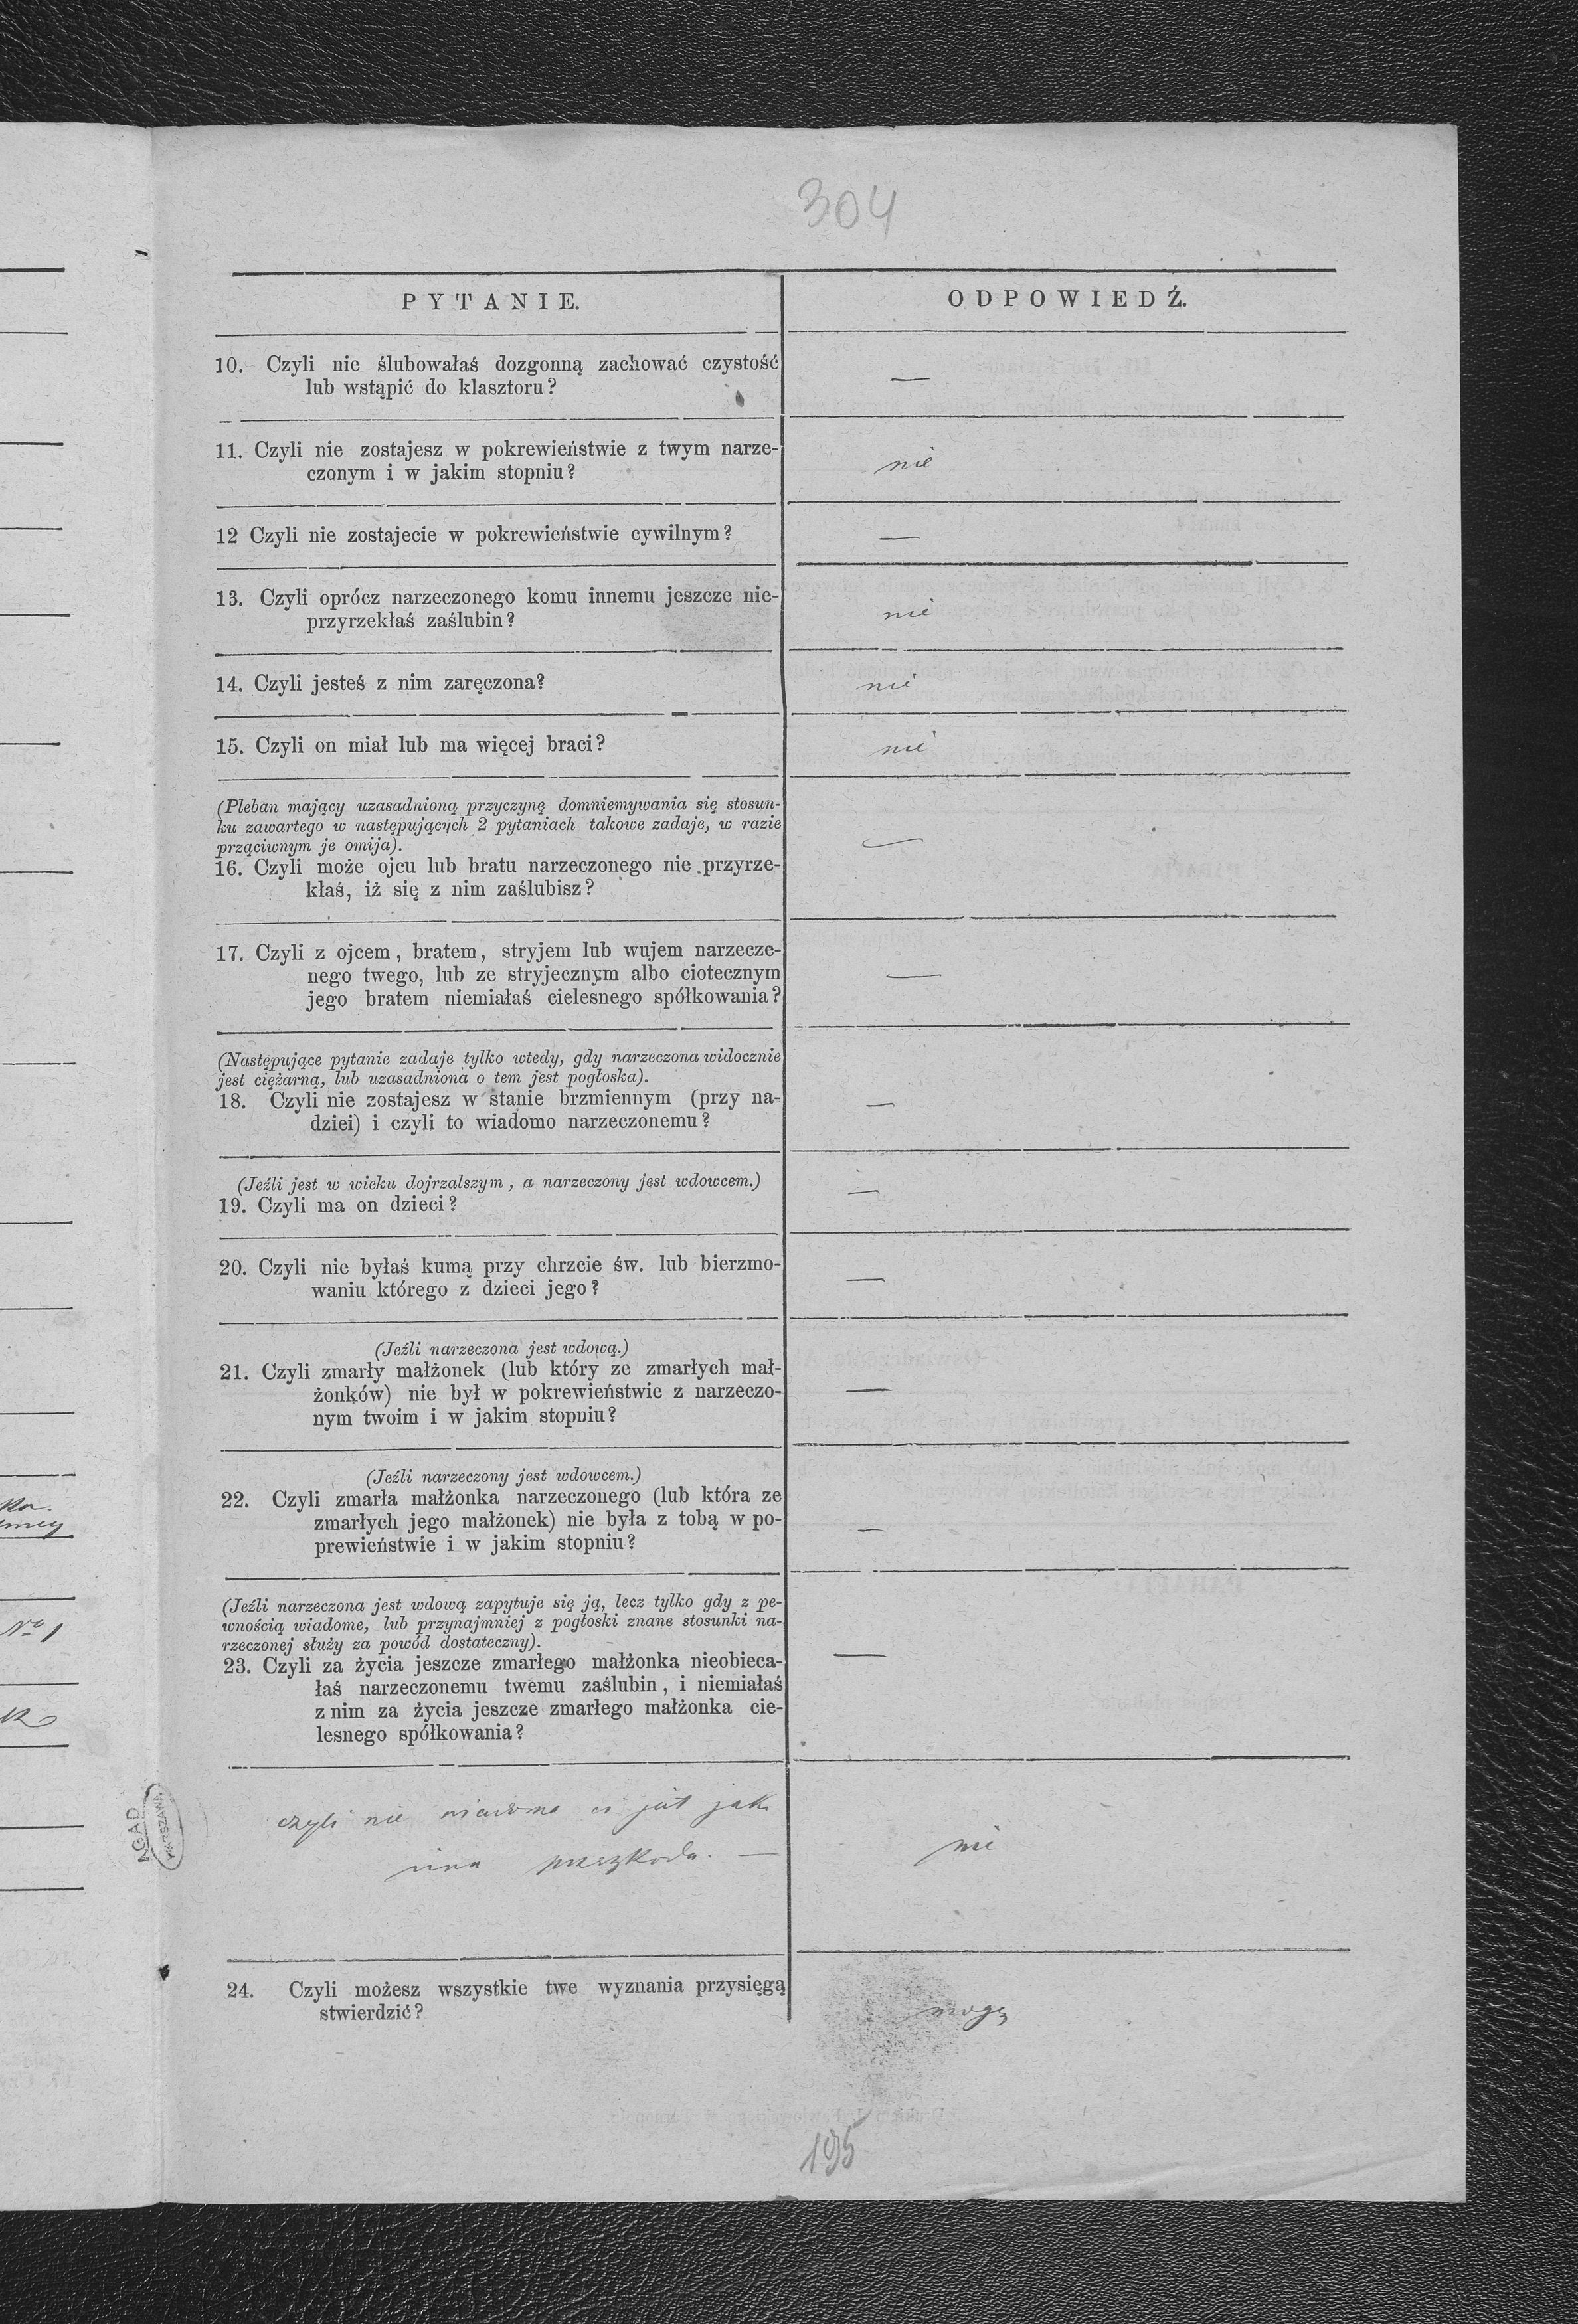 304
PYTANIE.
ODPOWIEDŹ.
10. Czyli nie ślubowałaś dozgonną zachować czystość
lub wstąpić do klasztoru?
—
11. Czyli nie zostajesz w pokrewieństwie z twym narze-
czonym i w jakim stopniu?
nie
12 Czyli nie zostajecie w pokrewieństwie cywilnym?
—
13. Czyli oprócz narzeczonego komu innemu jeszcze nie-
przyrzekłaś zaślubin?
nie
14. Czyli jesteś z nim zaręczona?
nie
15. Czyli on miał lub ma więcej braci?
nie
(Pleban mający uzasadnioną przyczynę domniemywania się stosun-
ku zawartego w następujących 2 pytaniach takowe zadaje, w razie
prząciwnym je omija).
16. Czyli może ojcu lub bratu narzeczonego nie przyrze-
kłaś, iż się z nim zaślubisz?
—
17. Czyli z ojcem, bratem, stryjem lub wujem narzecze-
nego twego, lub ze stryjecznym albo ciotecznym
jego bratem niemiałaś cielesnego spółkowania?
—
(Następujące pytanie zadaje tylko wtedy, gdy narzeczona widocznie
jest ciężarną, lub uzasadniona o tem jest pogłoska).
18. Czyli nie zostajesz w stanie brzmiennym (przy na-
dziei) i czyli to wiadomo narzeczonemu?
—
(Jeźli jest w wieku dojrzalszym, a narzeczony jest wdowcem.)
19. Czyli ma on dzieci?
—
20. Czyli nie byłaś kumą przy chrzcie św. lub bierzmo-
waniu którego z dzieci jego?
—
(Jeźli narzeczona jest wdową.)
21. Czyli zmarły małżonek (lub który ze zmarłych mał-
żonków) nie był w pokrewieństwie z narzeczo-
nym twoim i w jakim stopniu?
—
(Jeźli narzeczony jest wdowcem.)
22. Czyli zmarła małżonka narzeczonego (lub która ze
zmarłych jego małżonek) nie była z tobą w po-
prewieństwie i w jakim stopniu?
—
(Jeźli narzeczona jest wdową zapytuje się ją, lecz tylko gdy z pe-
wnością wiadome, lub przynajmniej z pogłoski znane stosunki na-
rzeczonej służy za powód dostateczny).
23. Czyli za życia jeszcze zmarłego małżonka nieobieca-
łaś narzeczonemu twemu zaślubin, i niemiałaś
z nim za życia jeszcze zmarłego małżonka cie-
lesnego spółkowania?
—
czyli nie wiadoma ci jest jaka
inna przeszkoda. —
nie
24. Czyli możesz wszystkie twe wyznania przysięgą
stwierdzić?
mogę
195
AGAD
WARSZAWA
No 1